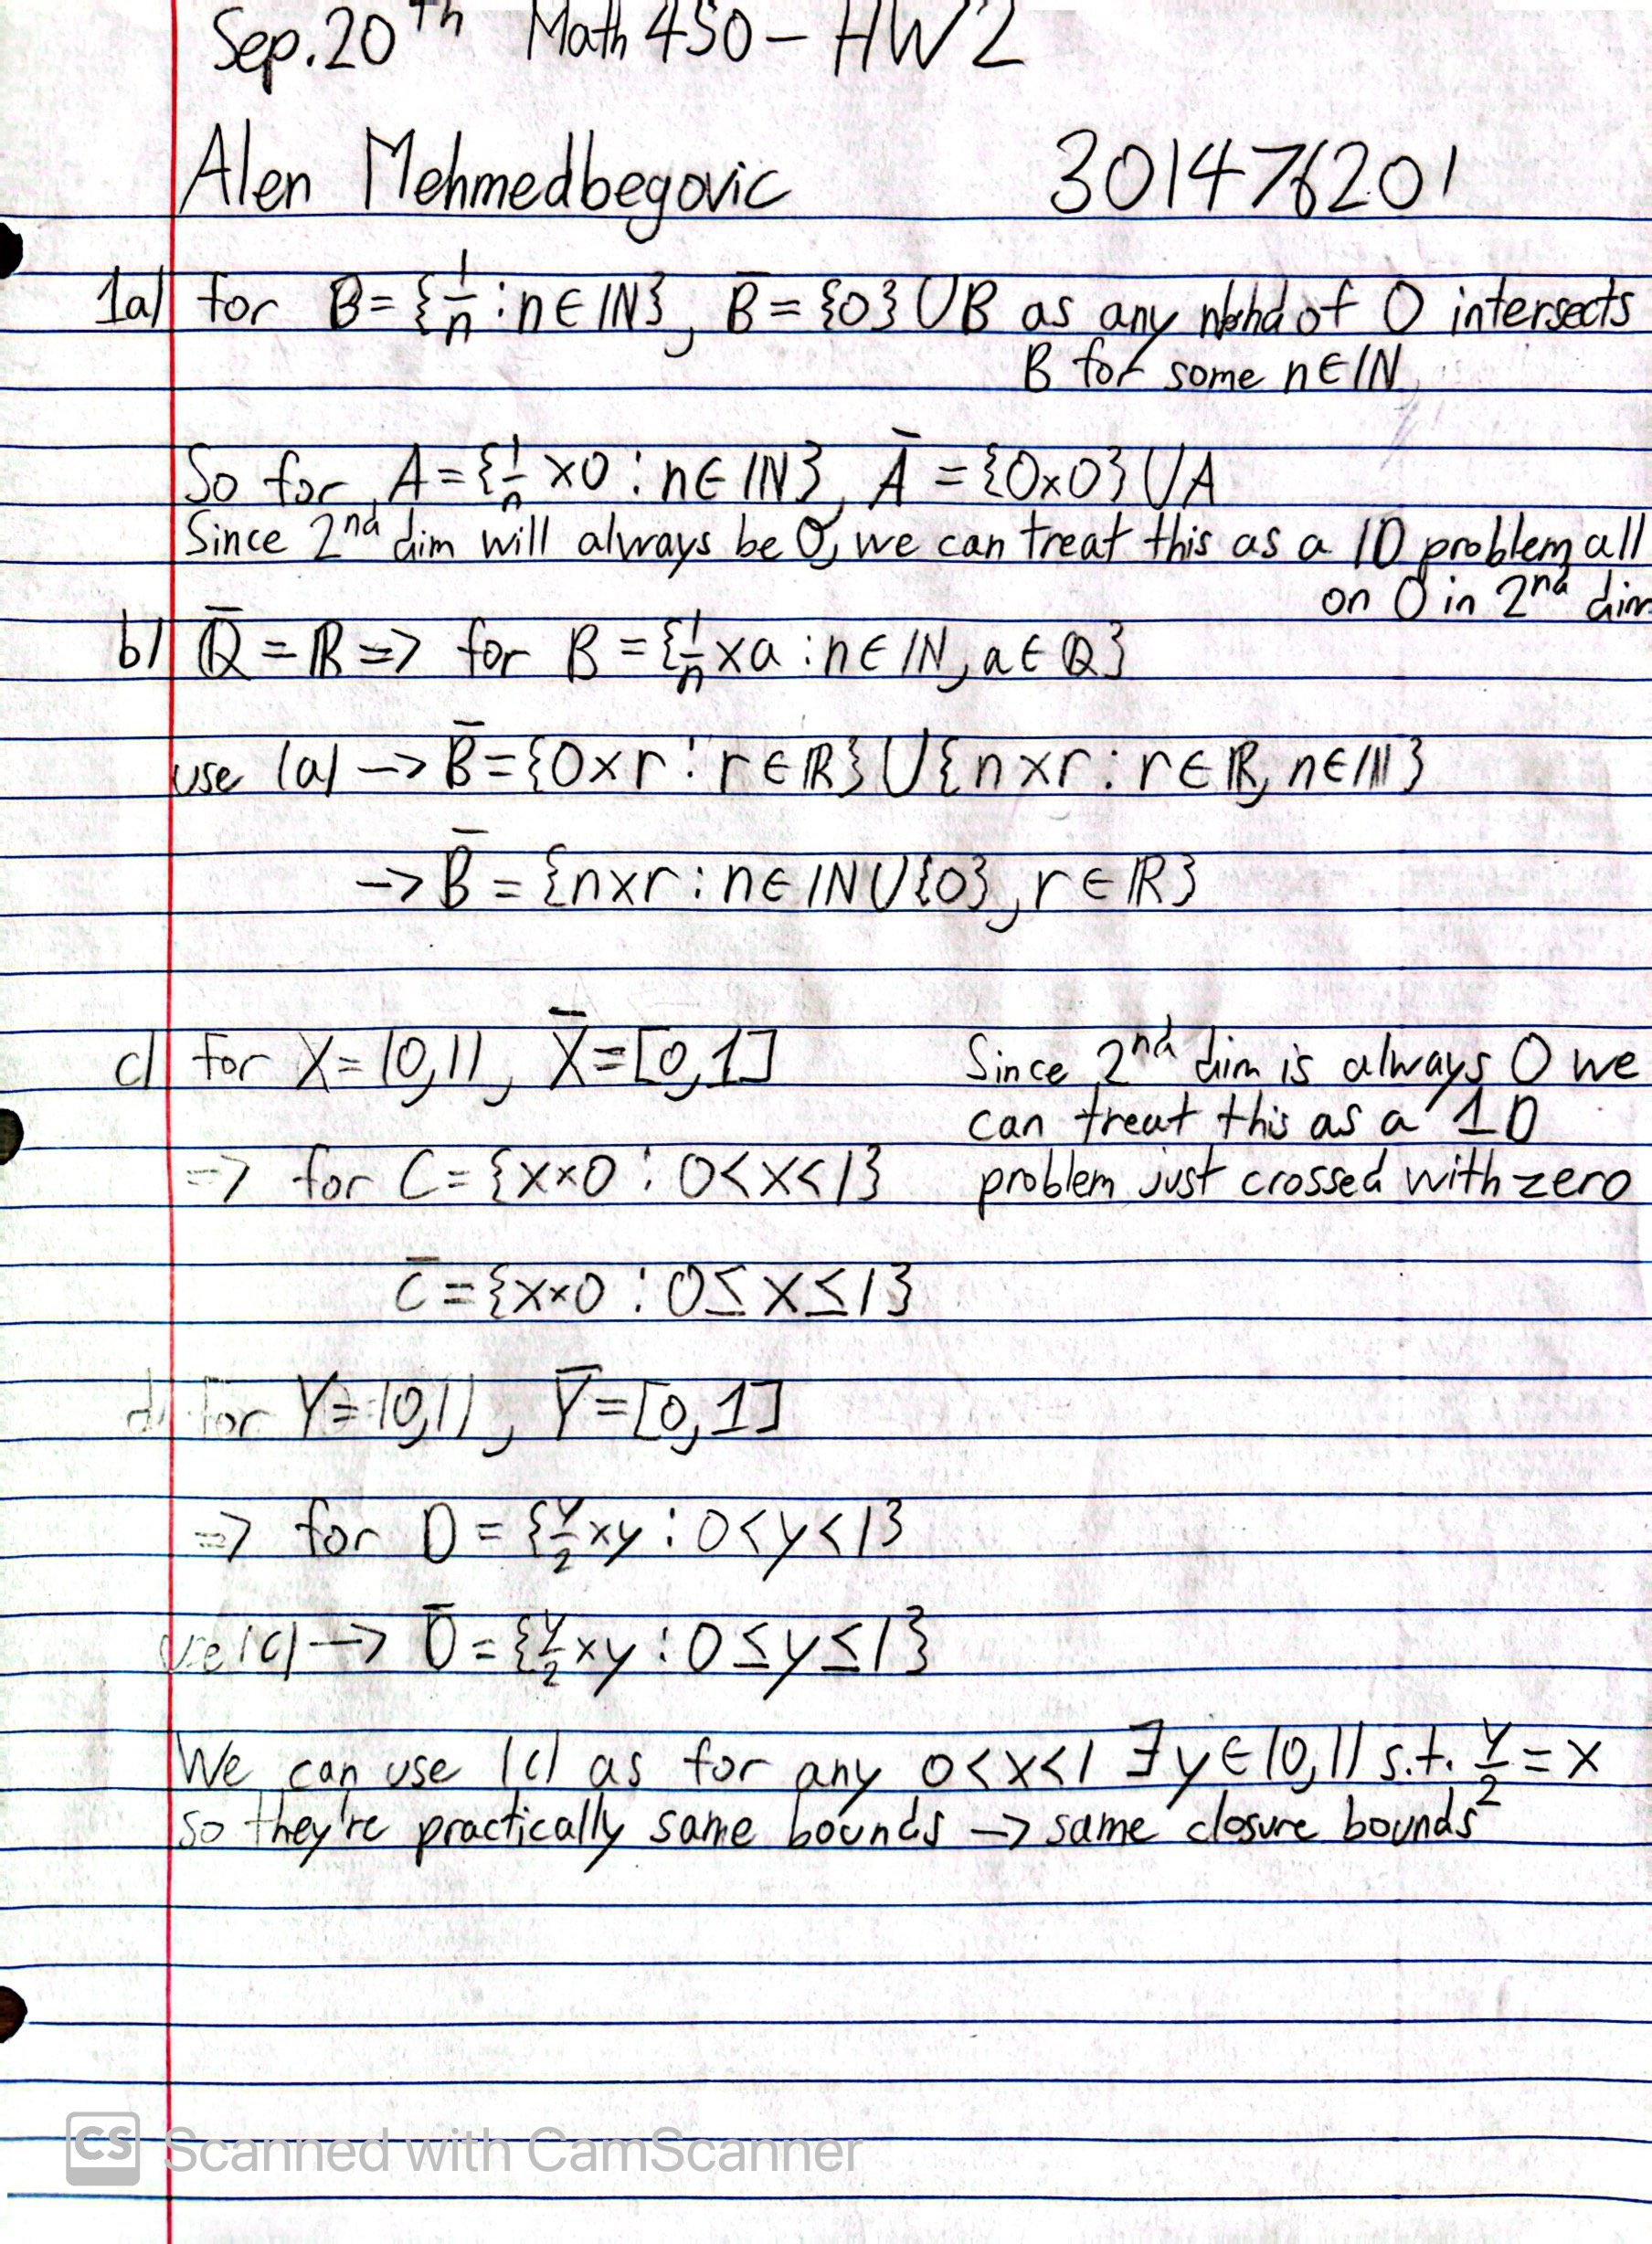 Sep.20th Math 450 - HW2
Alen Mehmedbegovic 301476201
1a) for B = {1/n : n ∈ ℕ}, B̄ = {0} ∪ B as any nbhd of 0 intersects
B for some n ∈ ℕ
So for A = {1/n × 0 : n ∈ ℕ}, Ā = {0×0} ∪ A
Since 2nd dim will always be 0, we can treat this as a 1D problem all
on 0 in 2nd dim
b) ℚ̄ = ℝ => for B = {1/n × a : n ∈ ℕ, a ∈ ℚ}
use (a) -> B̄ = {0×r : r ∈ ℝ} ∪ {n×r : r ∈ ℝ, n ∈ ℕ}
-> B̄ = {n×r : n ∈ ℕ ∪ {0}, r ∈ ℝ}
c) for X = (0,1), X̄ = [0,1] Since 2nd dim is always 0 we
can treat this as a 1D
=> for C = {x×0 : 0<x<1} problem just crossed with zero
C̄ = {x×0 : 0≤x≤1}
d) for Y = (0,1), Ȳ = [0,1]
=> for D = {y/2 × y : 0<y<1}
use (c) -> D̄ = {y/2 × y : 0≤y≤1}
We can use (c) as for any 0<x<1 ∃ y ∈ (0,1) s.t. y/2 = x
so they're practically same bounds -> same closure bounds
CS Scanned with CamScanner